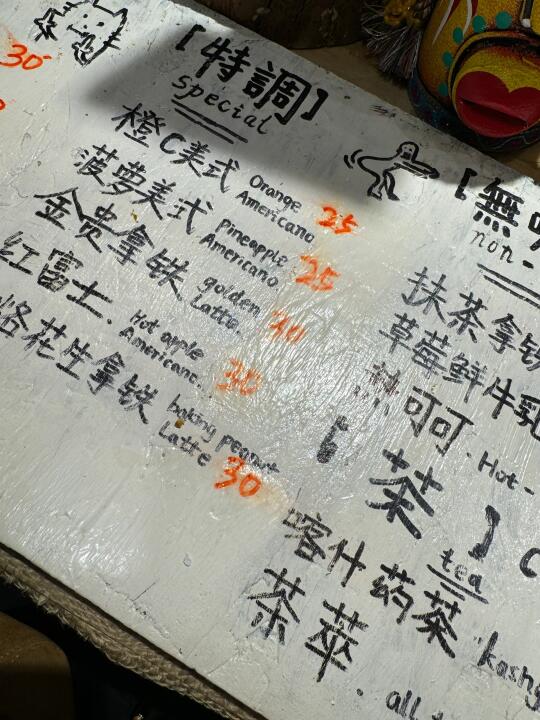 30
【特調】
special
橙C美式 Orange Americano 25
菠萝美式 Pineapple Americano 25
金贵拿铁 golden Latte 30
红富士. Hot apple Americano. 30
烙花生拿铁 baking peanut Latte 30
【無
non-
抹茶拿铁
草莓鲜牛乳
热可可. Hot-
【茶】
tea
喀什药茶 kashg
茶萃. all